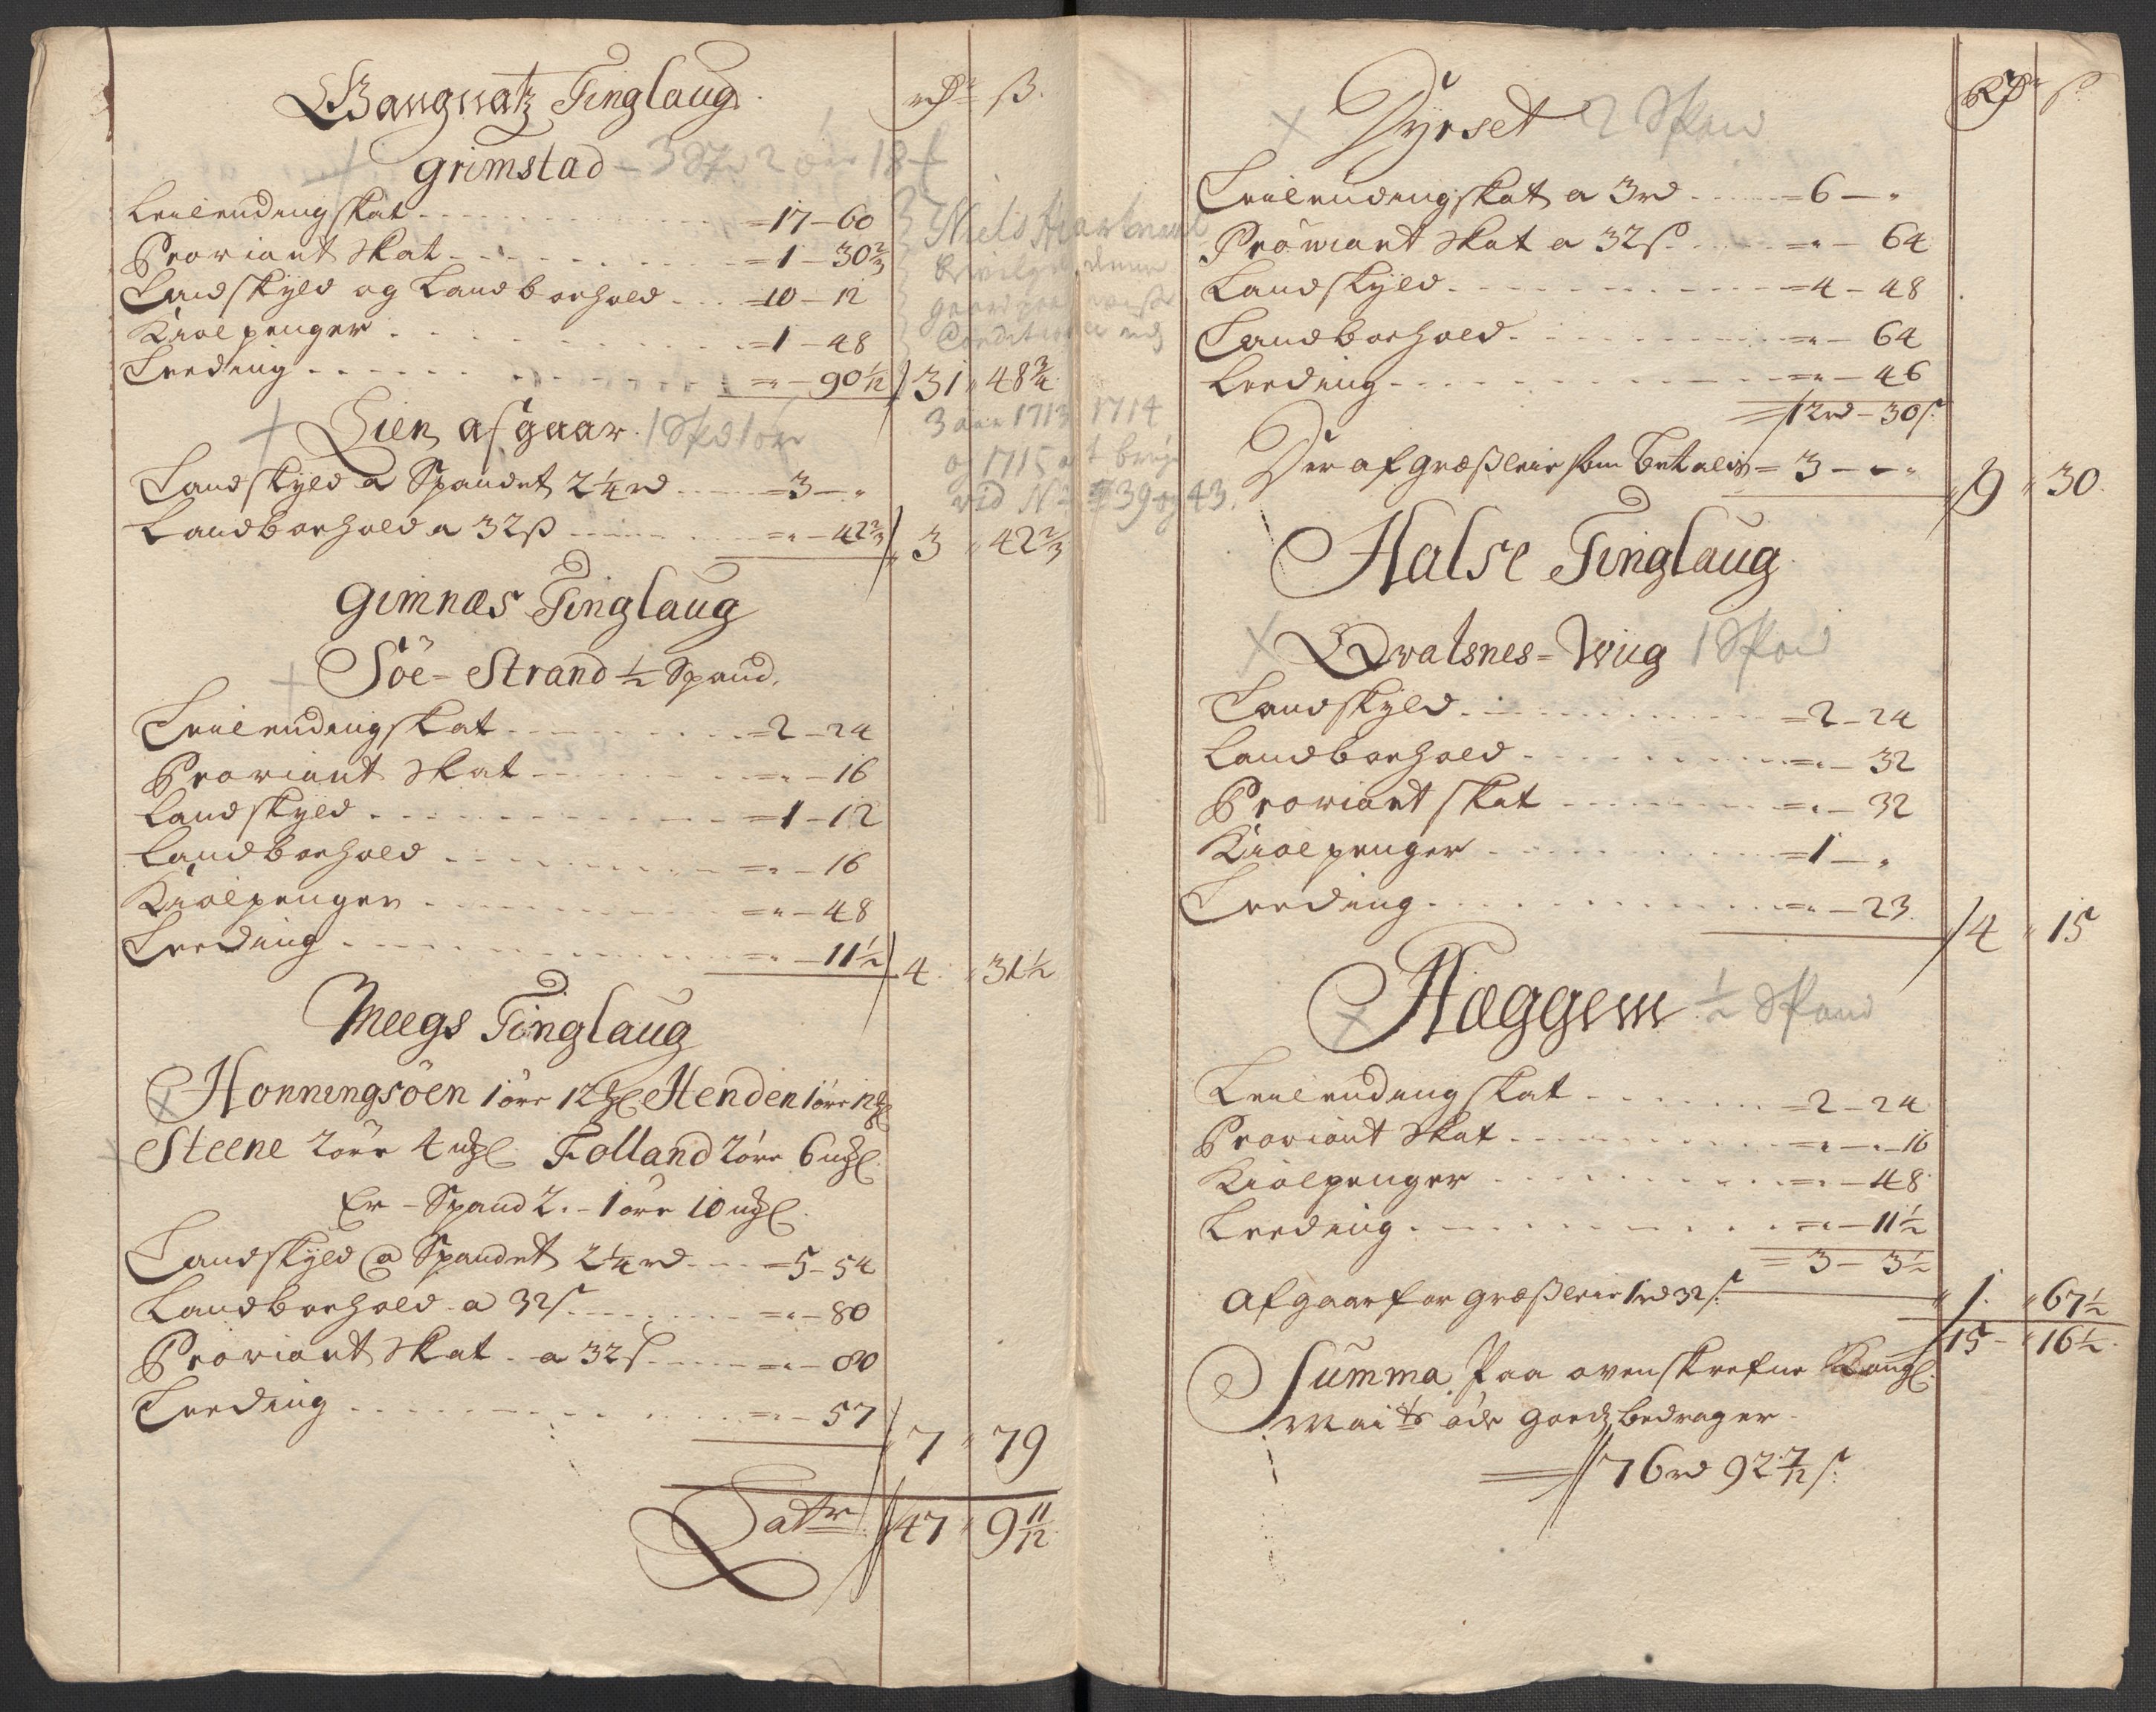 Bangnatz Tinglaug. rdr ß.
grimstad - 3 Spd 2 øre 18
Leilendingskat - - - = 17 - 60
Proviant Skat - - - = 1 - 30 2/3
Landskyld og Landboehold - - - = 10 - 12
Kiølpenger - - - = 1 - 48
Leeding - - - = " - 90 1/12 / 31 " 48 3/4
Niels
denne
Condition
3 aar 1713 1714
og 1715 at
vid No 39 og 43.
Lien afgaar 1 Spd 1 øre
Landskyld a Spandet 2 1/4 rd - - - = 3 - "
Landboehold a 32 ß - - - = " - 42 2/3 / 3 " 42 2/3
Gimnæs Tinglaug
Söe-Strand 1/2 Spand.
Leilendingskat - - - = 2 - 24
Proviant Skat - - - = " - 16
Landskyld - - - = 1 - 12
Landboehold - - - = " - 16
Kiølpenger - - - = " - 48
Leeding - - - = " - 11 1/2 / 4 " 31 1/2
Meegs Tinglaug
Honningsöen 1 øre 12 Henden 1 øre 12
Steene 2 øre 4 mkl Folland 2 øre 6 mkl
Er - Spand 2. - 1 øre 10 mkl.
Landskyld a Spandet 2 1/4 rd - - - = 5 - 54
Landboehold a 32 ß - - - = " - 80
Proviant Skat a 32 ß - - - = " - 80
Leeding - - - = " - 57 / 7 " 79
Latr // 47 " 9 11/12
Rdr ß
Dyrset 2 Spand
Leilendingskat a 3 rd - - - = 6 - "
Proviant Skat a 32 ß - - - = " - 64
Landskyld - - - = 4 - 48
Landboehold - - - = " - 64
Leeding - - - = " - 46
= 12 rd - 30 ß
Der af græsleie som betales = 3 - " - " / 9 " 30.
Halse Tinglaug
Qvatsnes-Wiig 1 Spand
Landskyld - - - = 2 - 24
Landboehold - - - = " - 32
Proviant skat - - - = " - 32
Kiølpenger - - - = 1 - "
Leeding - - - = " - 23. / 4 " 15
Hæggem 1/2 Spand
Leilendingskat - - - = 2 - 24
Proviant Skat - - - = " - " - 16
Kiølpenger - - - = " - 48
Leeding - - - = " - 11 1/2
= 3 - 3 1/2
Afgaar for græsleie 1 rd 32 ß " 1. " 67 1/2
15 - " 16 1/2
Summa Paa ovenskrefne Kongl.
Maits øde goedz bedrager -
// 76 rd 92 7/12 ß